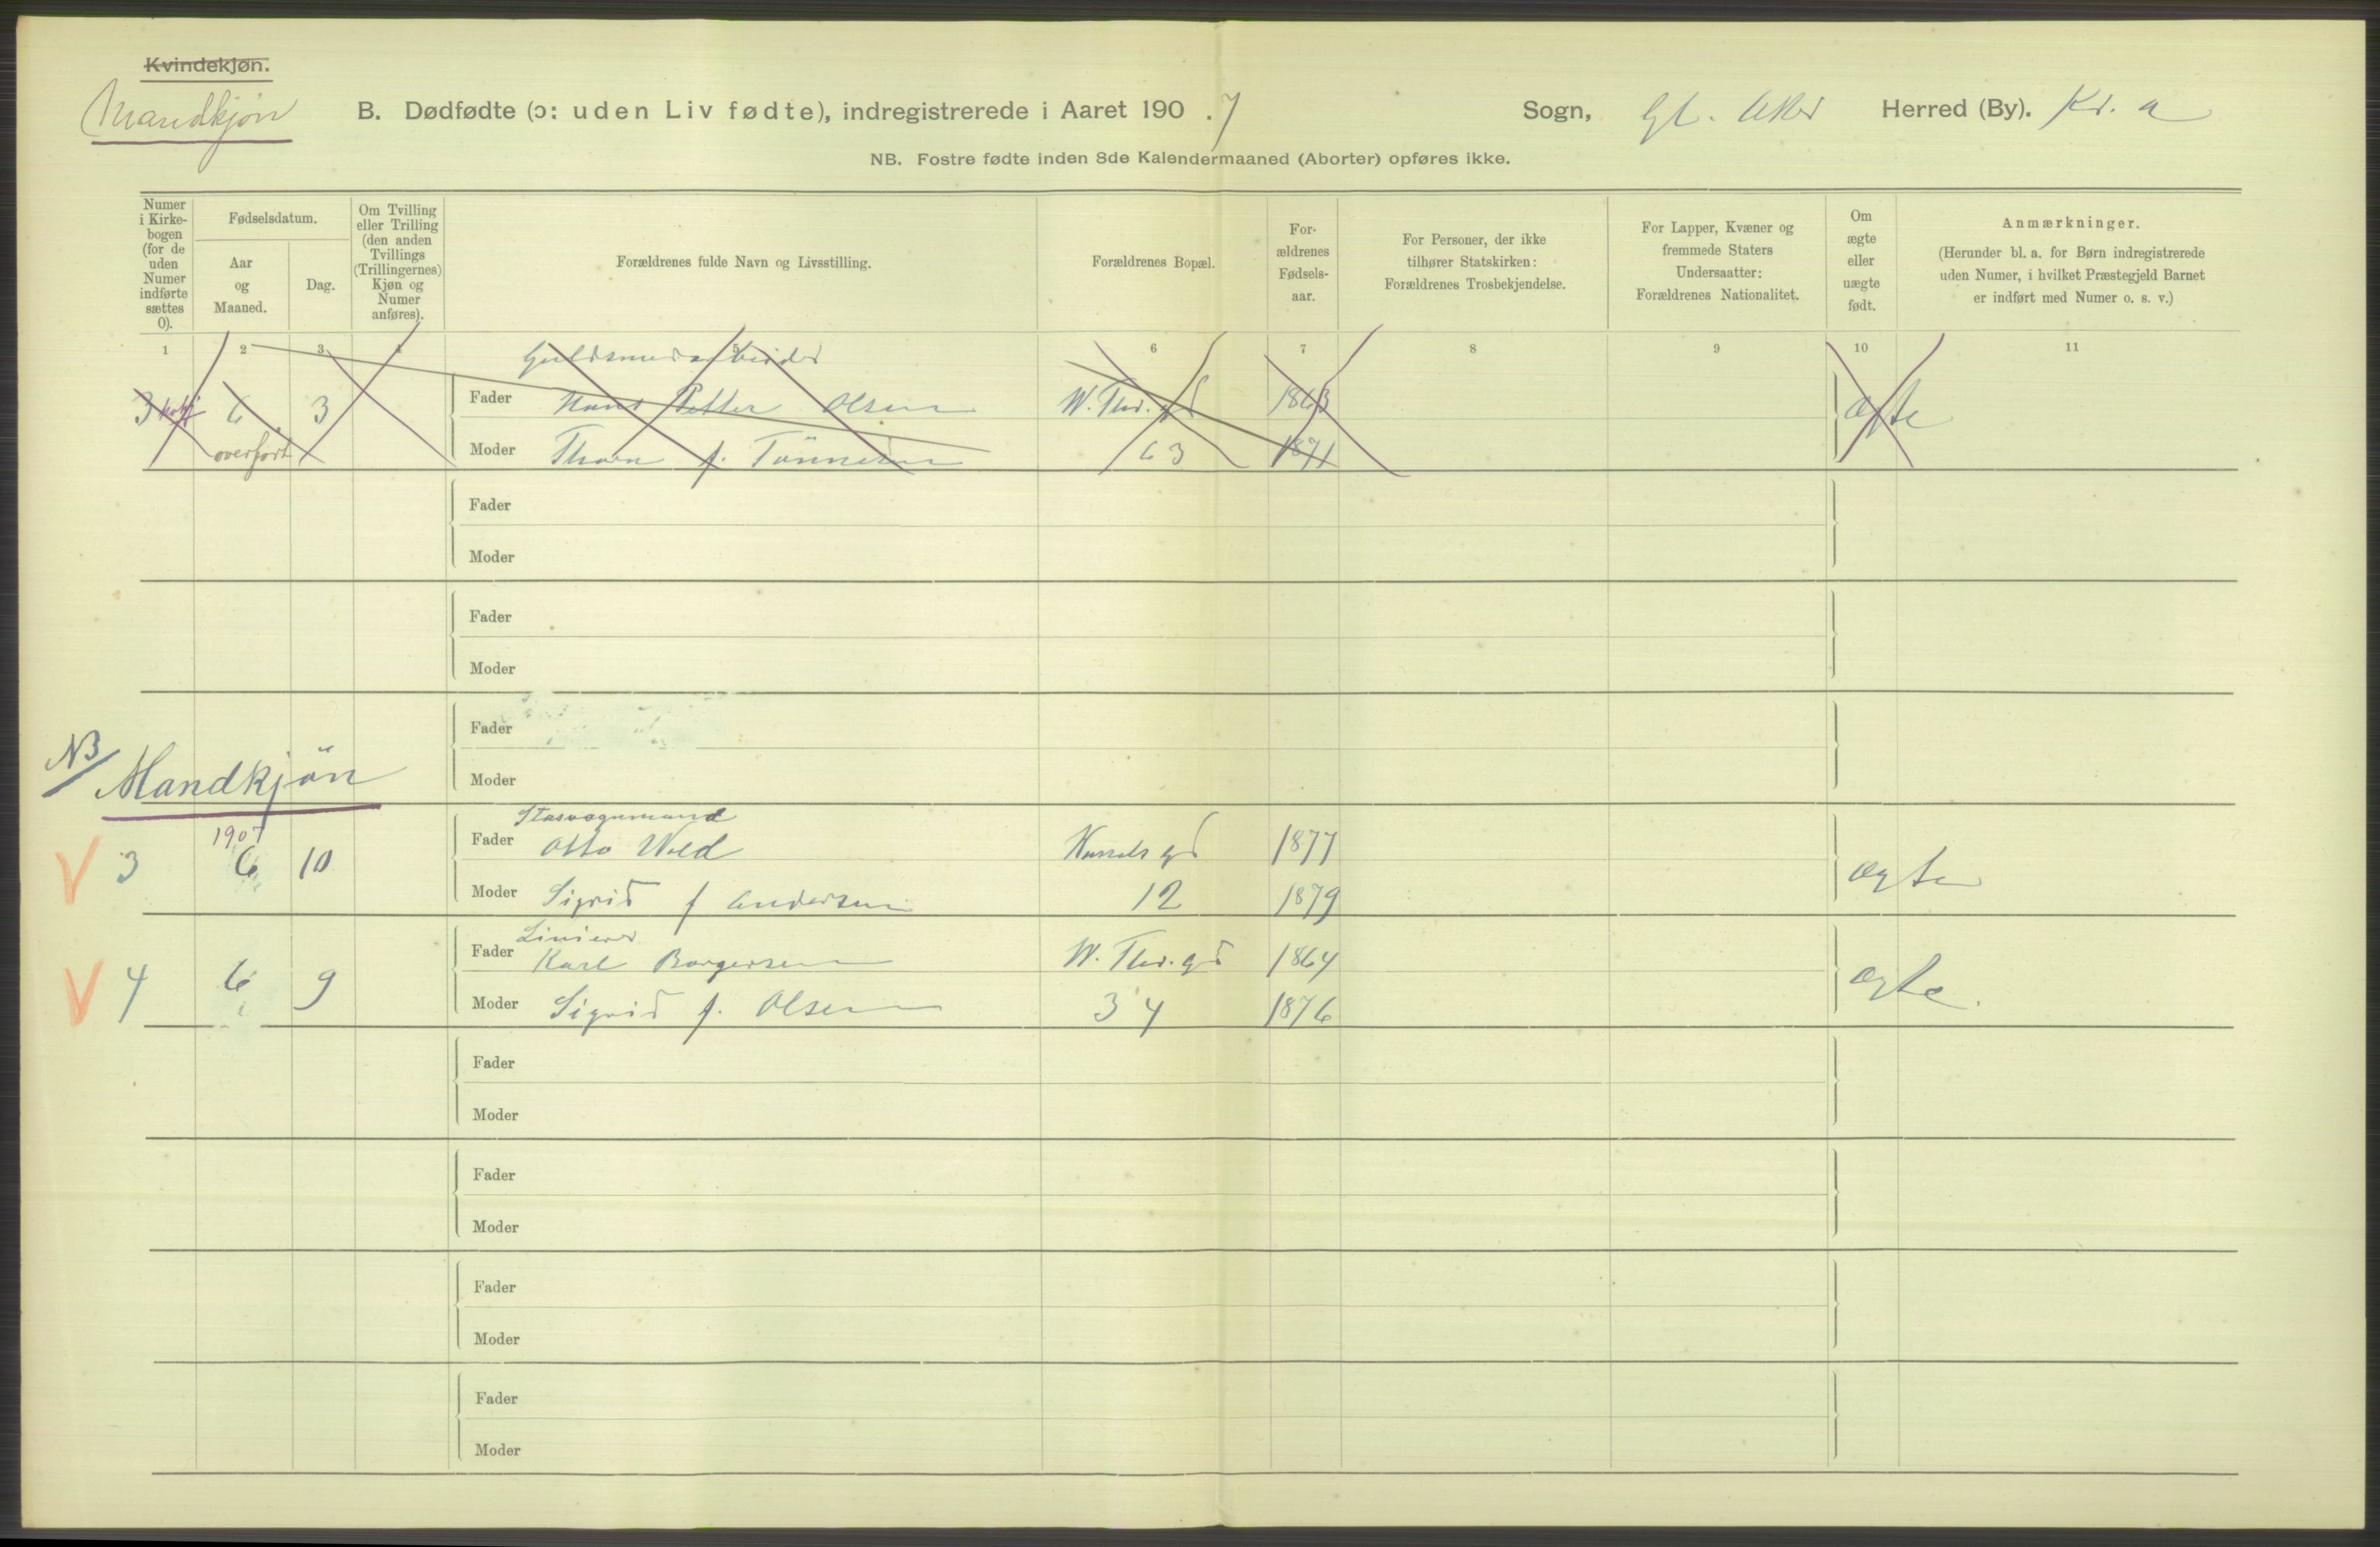 Kvindekjøn.
Mandkjøn
B. Dødfødte (ɔ: uden Liv fødte), indregistrerede i Aaret 190 . 7
Sogn, Gl. Aker Herred (By). Kr. a
NB. Fostre fødte inden 8de Kalendermaaned (Aborter) opføres ikke.
Numer i Kirke- bogen (for de uden Numer indførte sættes 0).
Fødselsdatum.
Aar og Maaned.
Dag.
Om Tvilling eller Trilling (den anden Tvillings (Trillingernes) Kjøn og Numer anføres).
Forældrenes fulde Navn og Livsstilling.
Forældrenes Bopæl.
For- ældrenes Fødsels- aar.
For Personer, der ikke tilhører Statskirken: Forældrenes Trosbekjendelse.
For Lapper, Kvæner og fremmede Staters Undersaatter: Forældrenes Nationalitet.
Om ægte eller uægte født.
Anmærkninger.
(Herunder bl. a. for Børn indregistrerede uden Numer, i hvilket Præstegjeld Barnet er indført med Numer o. s. v.)
1 2 3 4 5 6 7 8 9 10 11
Guldsmedarbeider
3 6. 3 Fader Hans Petter Olsen W. Thr. gd 1863 ægte
overført Moder f. 63 1871
Fader
Moder
Fader
Moder
Fader
NB/ Mandkjön
Moder
1907
3 6 10 Fader Otto Wold gd 1877 ægte
Moder Sigrid f Andersen 12 1879
Linierer
4 6 9 Fader Karl Borgersen W. Thr. gd 1864 ægte.
Moder Sigrid f. Olsen 34 1876
Fader
Moder
Fader
Moder
Fader
Moder
Fader
Moder